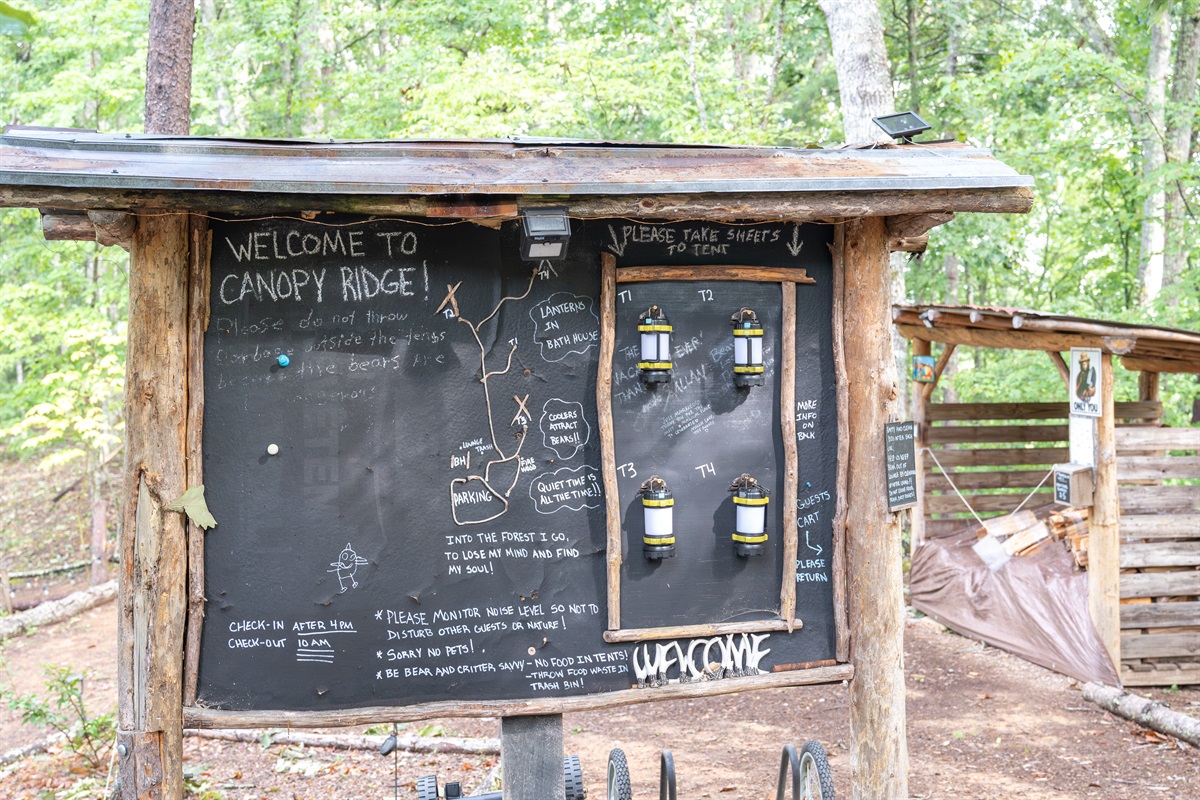 WELCOME TO
CANOPY RIDGE!
Please do not throw
Garbage outside the tents
because the bears are
PLEASE TAKE SHEETS
TO TENT
T1
T2
T3
T4
LANTERNS
IN
BATH HOUSE
T1
T3
COOLERS
ATTRACT
BEARS!!
LOUNGE
TRASH
BH
FIRE
WOOD
PARKING
QUIET TIME IS
ALL THE TIME!!
INTO THE FOREST I GO,
TO LOSE MY MIND AND FIND
MY SOUL!
CHECK-IN AFTER 4 PM
CHECK-OUT 10 AM
* PLEASE MONITOR NOISE LEVEL SO NOT TO
DISTURB OTHER GUESTS OR NATURE!
* SORRY NO PETS!
* BE BEAR AND CRITTER SAVVY - NO FOOD IN TENTS!
- THROW FOOD WASTE IN
TRASH BIN!
WELCOME
MORE
INFO
ON
BACK
GUESTS
CART
PLEASE
RETURN
ONLY YOU